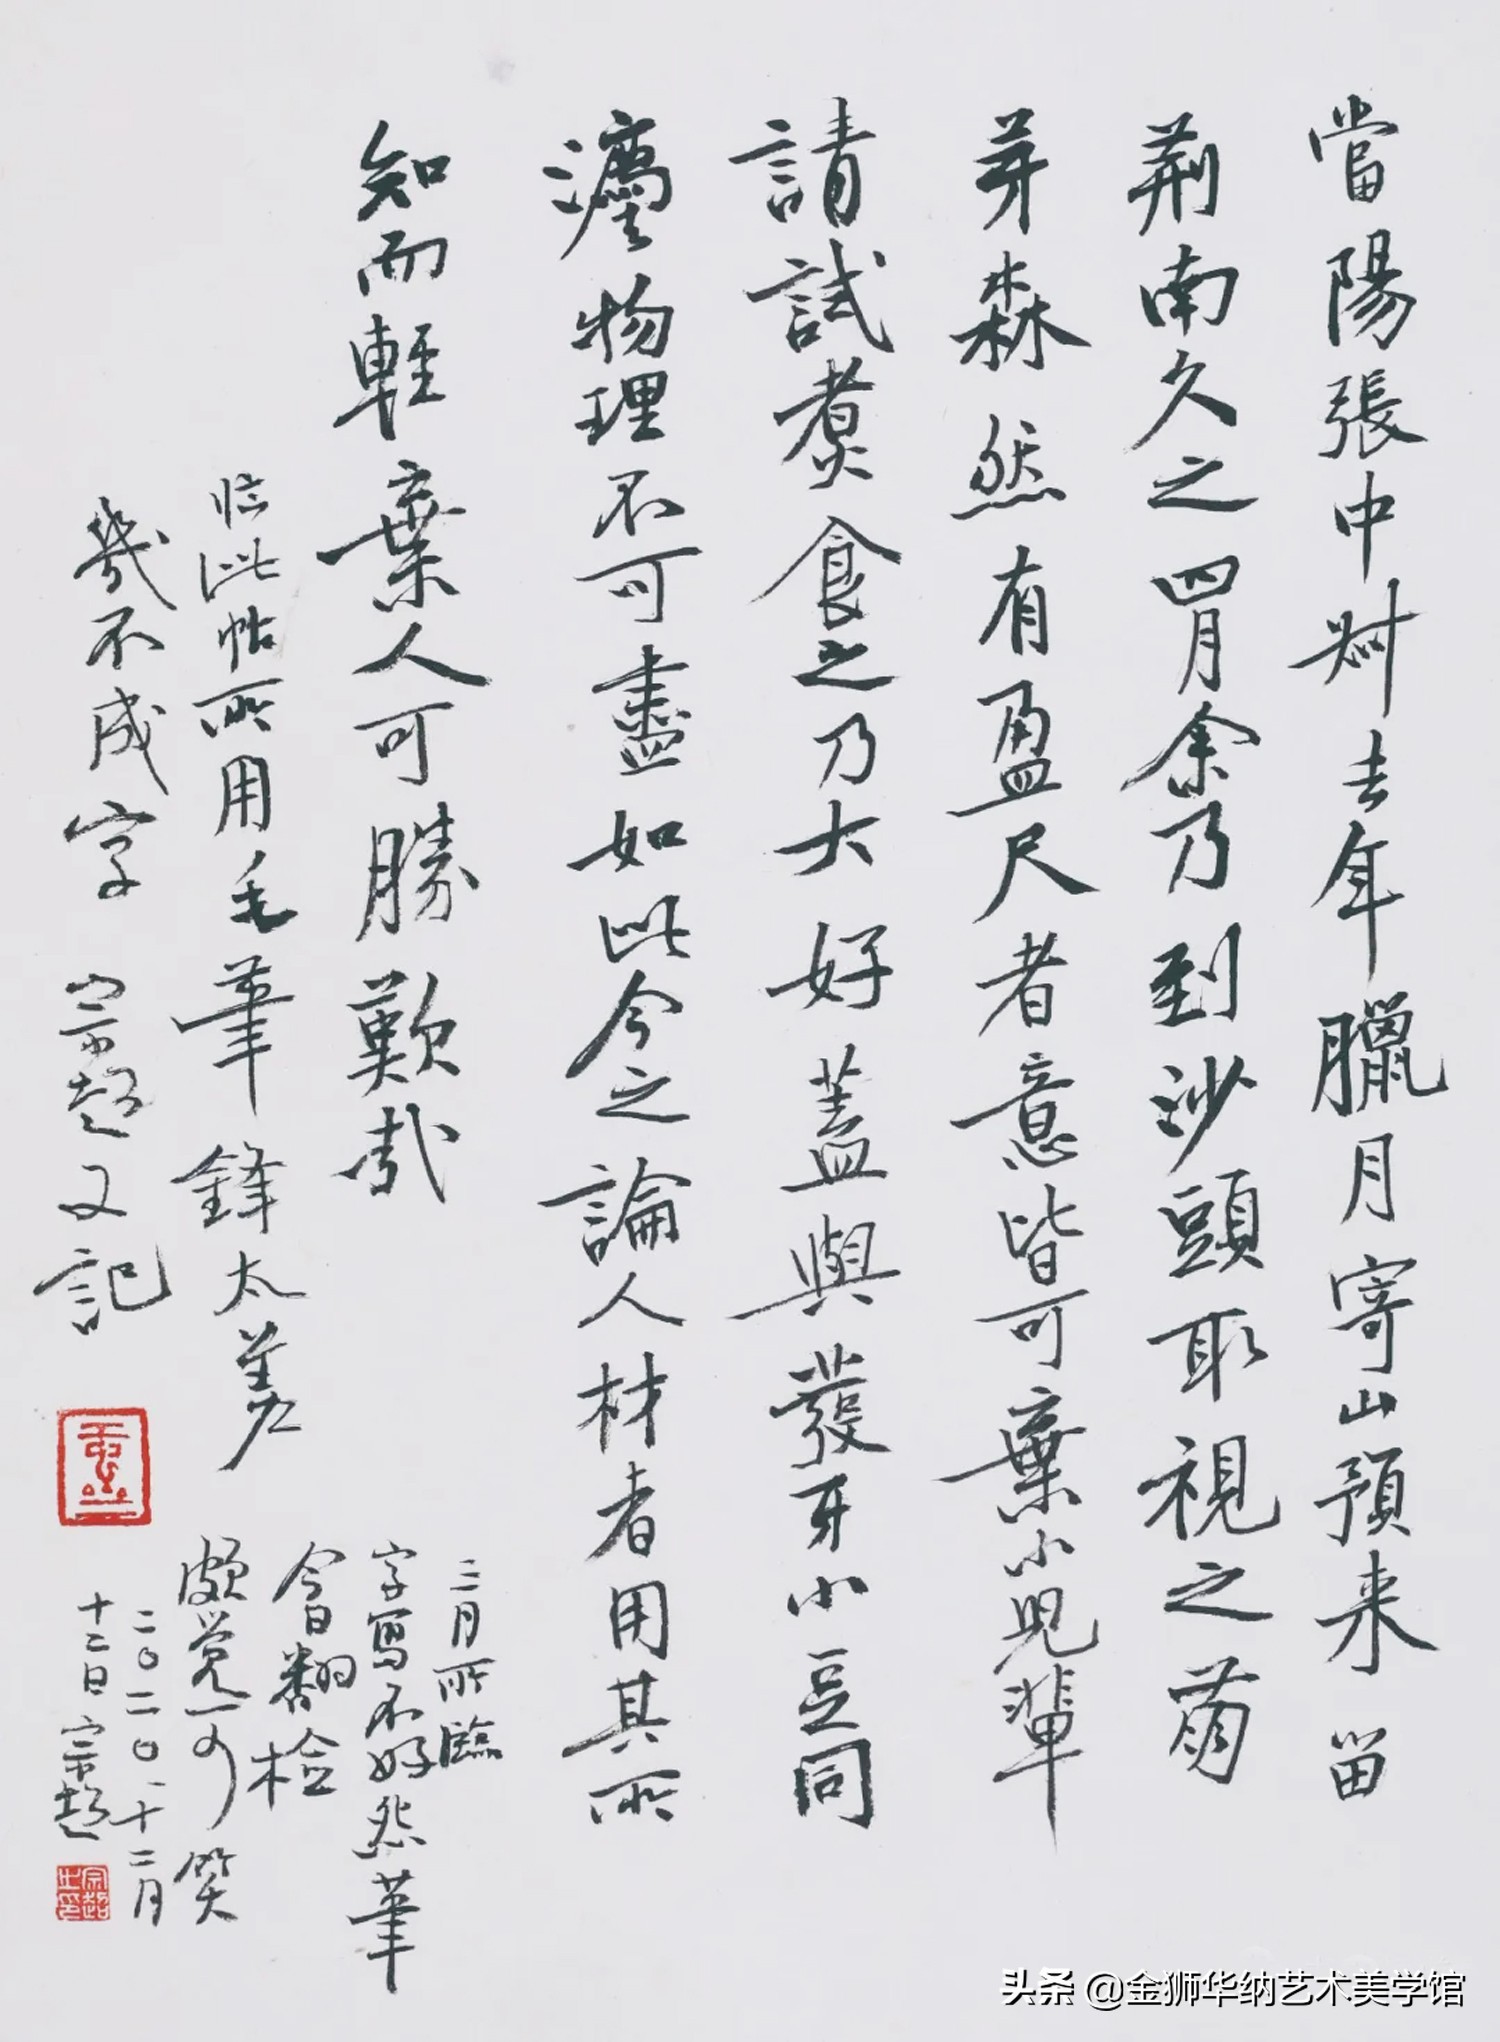 當陽張中叔去年臘月寄山預来留
荊南久之四月余乃到沙頭取視之萌
芽森然有盈尺者意皆可棄小兒輩
請試煮食之乃大好蓋與發牙小豆同
瀍物理不可盡如此今之論人材者用其所
知而輕棄人可勝歎哉
临此帖所用毛筆鋒太差
幾不成字 宗超又記
二月所臨
字寫不好怨筆
今日翻檢
頗覺可笑
二〇二〇.十二月
十二日宗超
宗超之印
头条 @金狮华纳艺术美学馆